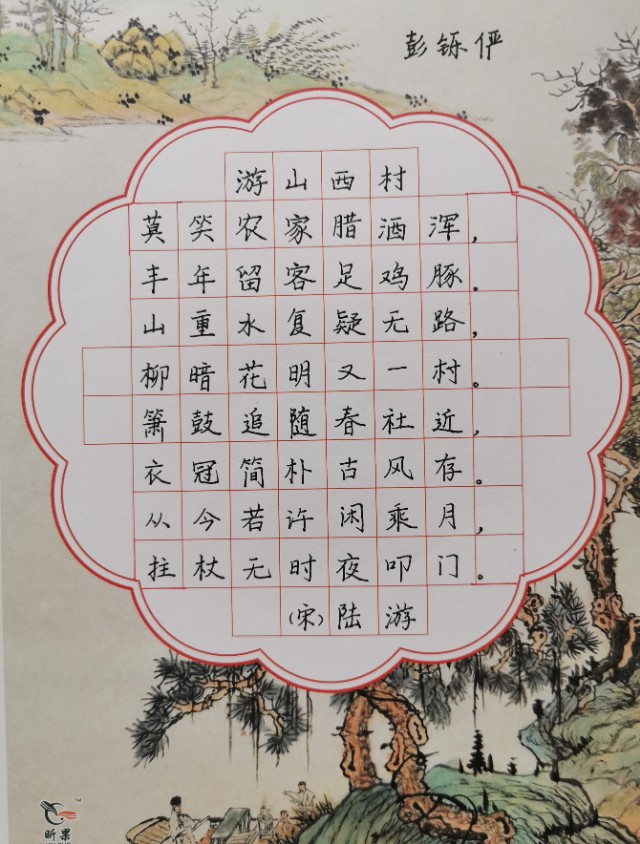 彭铄俨
游山西村
莫笑农家腊酒浑,
丰年留客足鸡豚。
山重水复疑无路,
柳暗花明又一村。
箫鼓追随春社近,
衣冠简朴古风存。
从今若许闲乘月,
拄杖无时夜叩门。
(宋)陆游
昕果